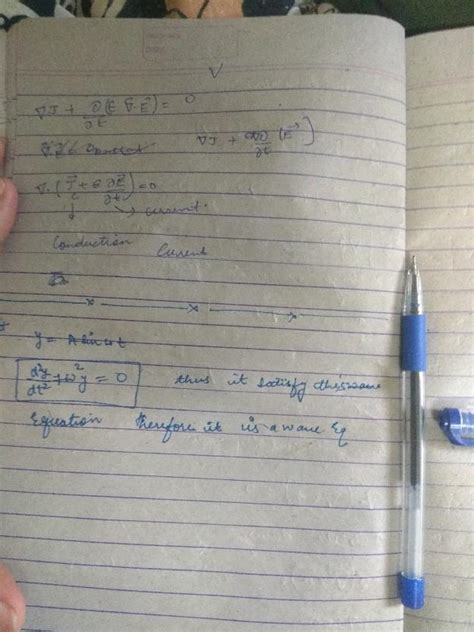 V
∇J + ∂/∂t (ε ∇·E⃗) = 0
∇J + ∂/∂t (E⃗)
∇·(J⃗ + ε ∂E⃗/∂t) = 0
current.
Conduction Current
y = A sin ωt
d²y/dt² + ω²y = 0 thus it satisfy this wave
Equation therefore it is a wave Eq